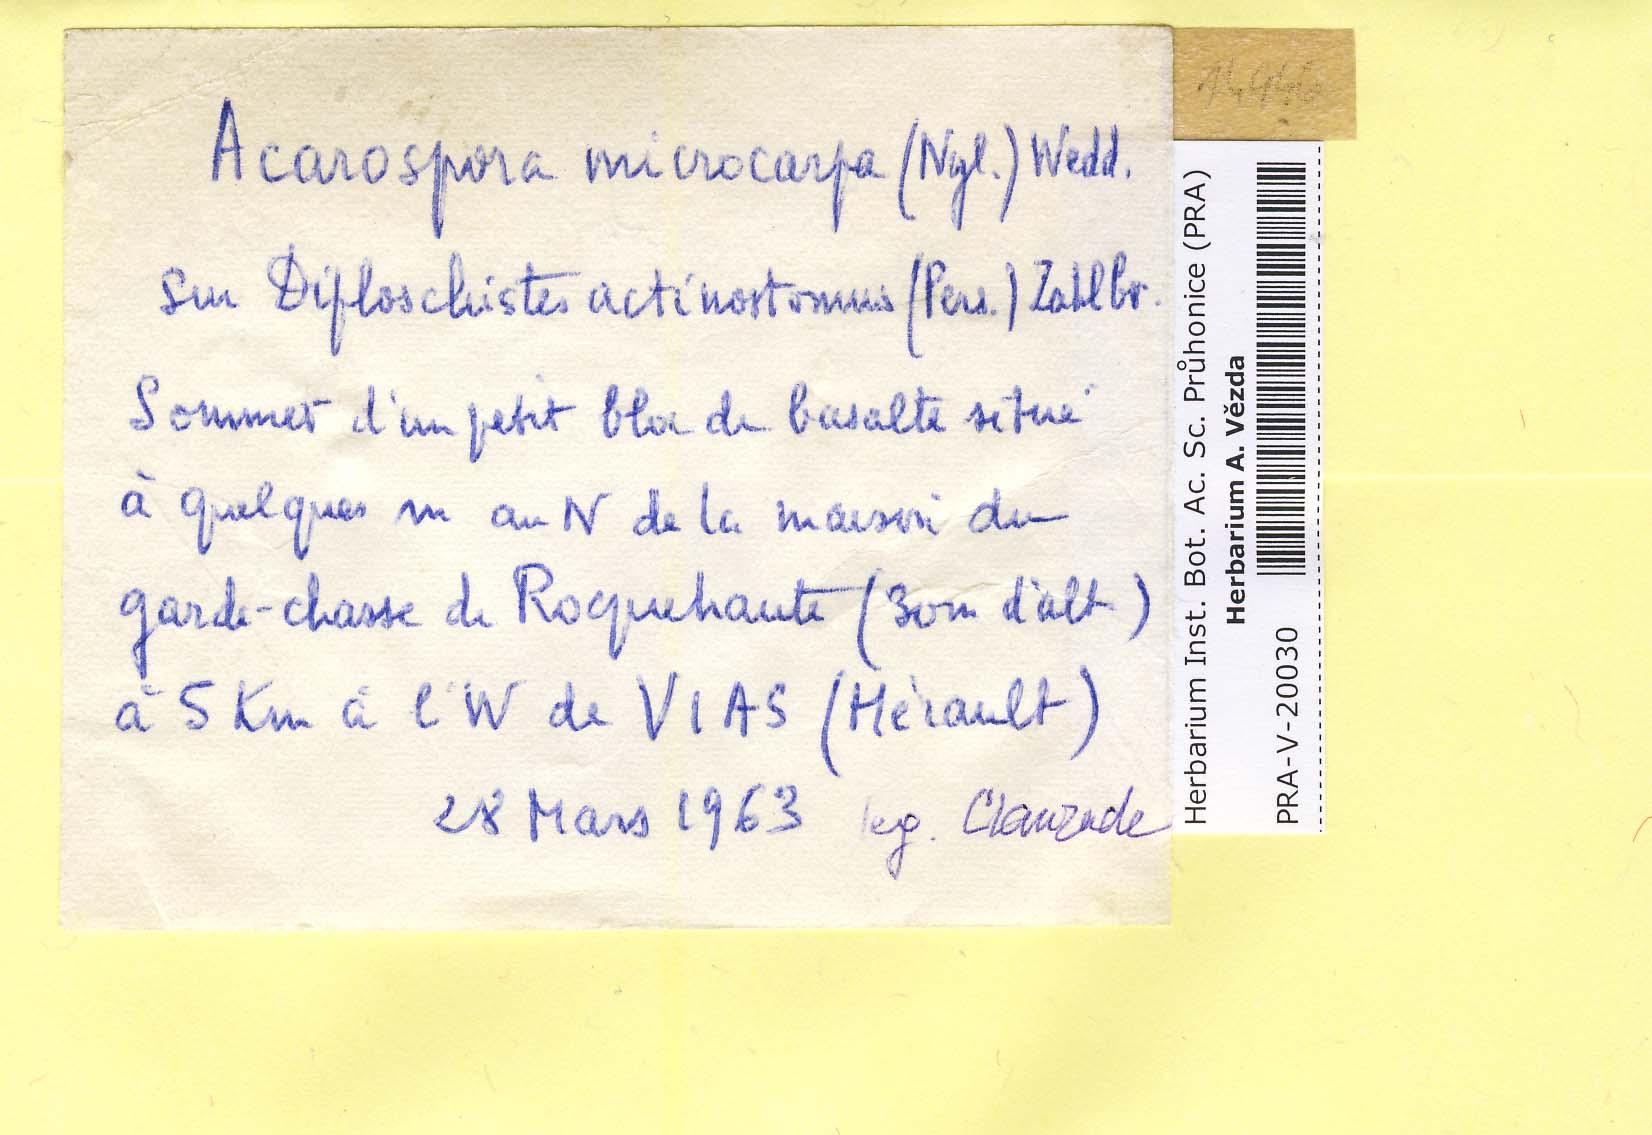 Acarospora microcarpa (Nyl.) Wedd.
sur Diploschistes actinostomus (Pers.) Zahlbr.
Sommet d'un petit bloc de basalte situé
à quelques m au N de la maison du
garde-chasse de Roquehaute (30m d'alt.)
à 5 Km à l'W de VIAS (Hérault)
28 Mars 1963 leg. Clauzade
Herbarium Inst. Bot. Ac. Sc. Průhonice (PRA)
Herbarium A. Vězda
PRA-V-20030